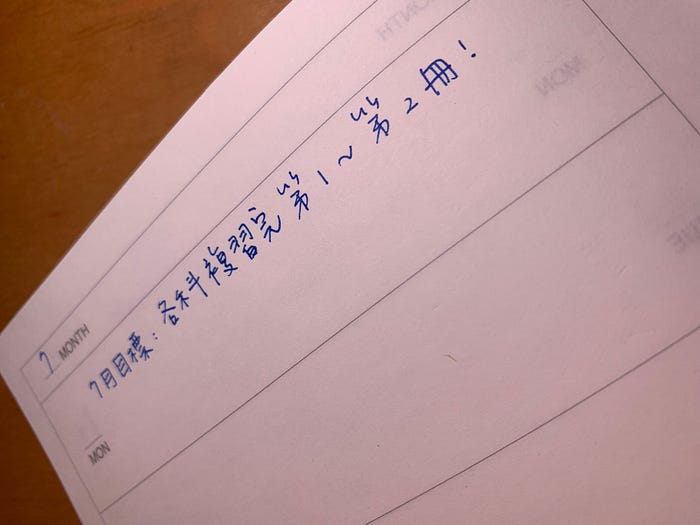 7 MONTH
7月目標：各科複習完第1~第2冊！
MON